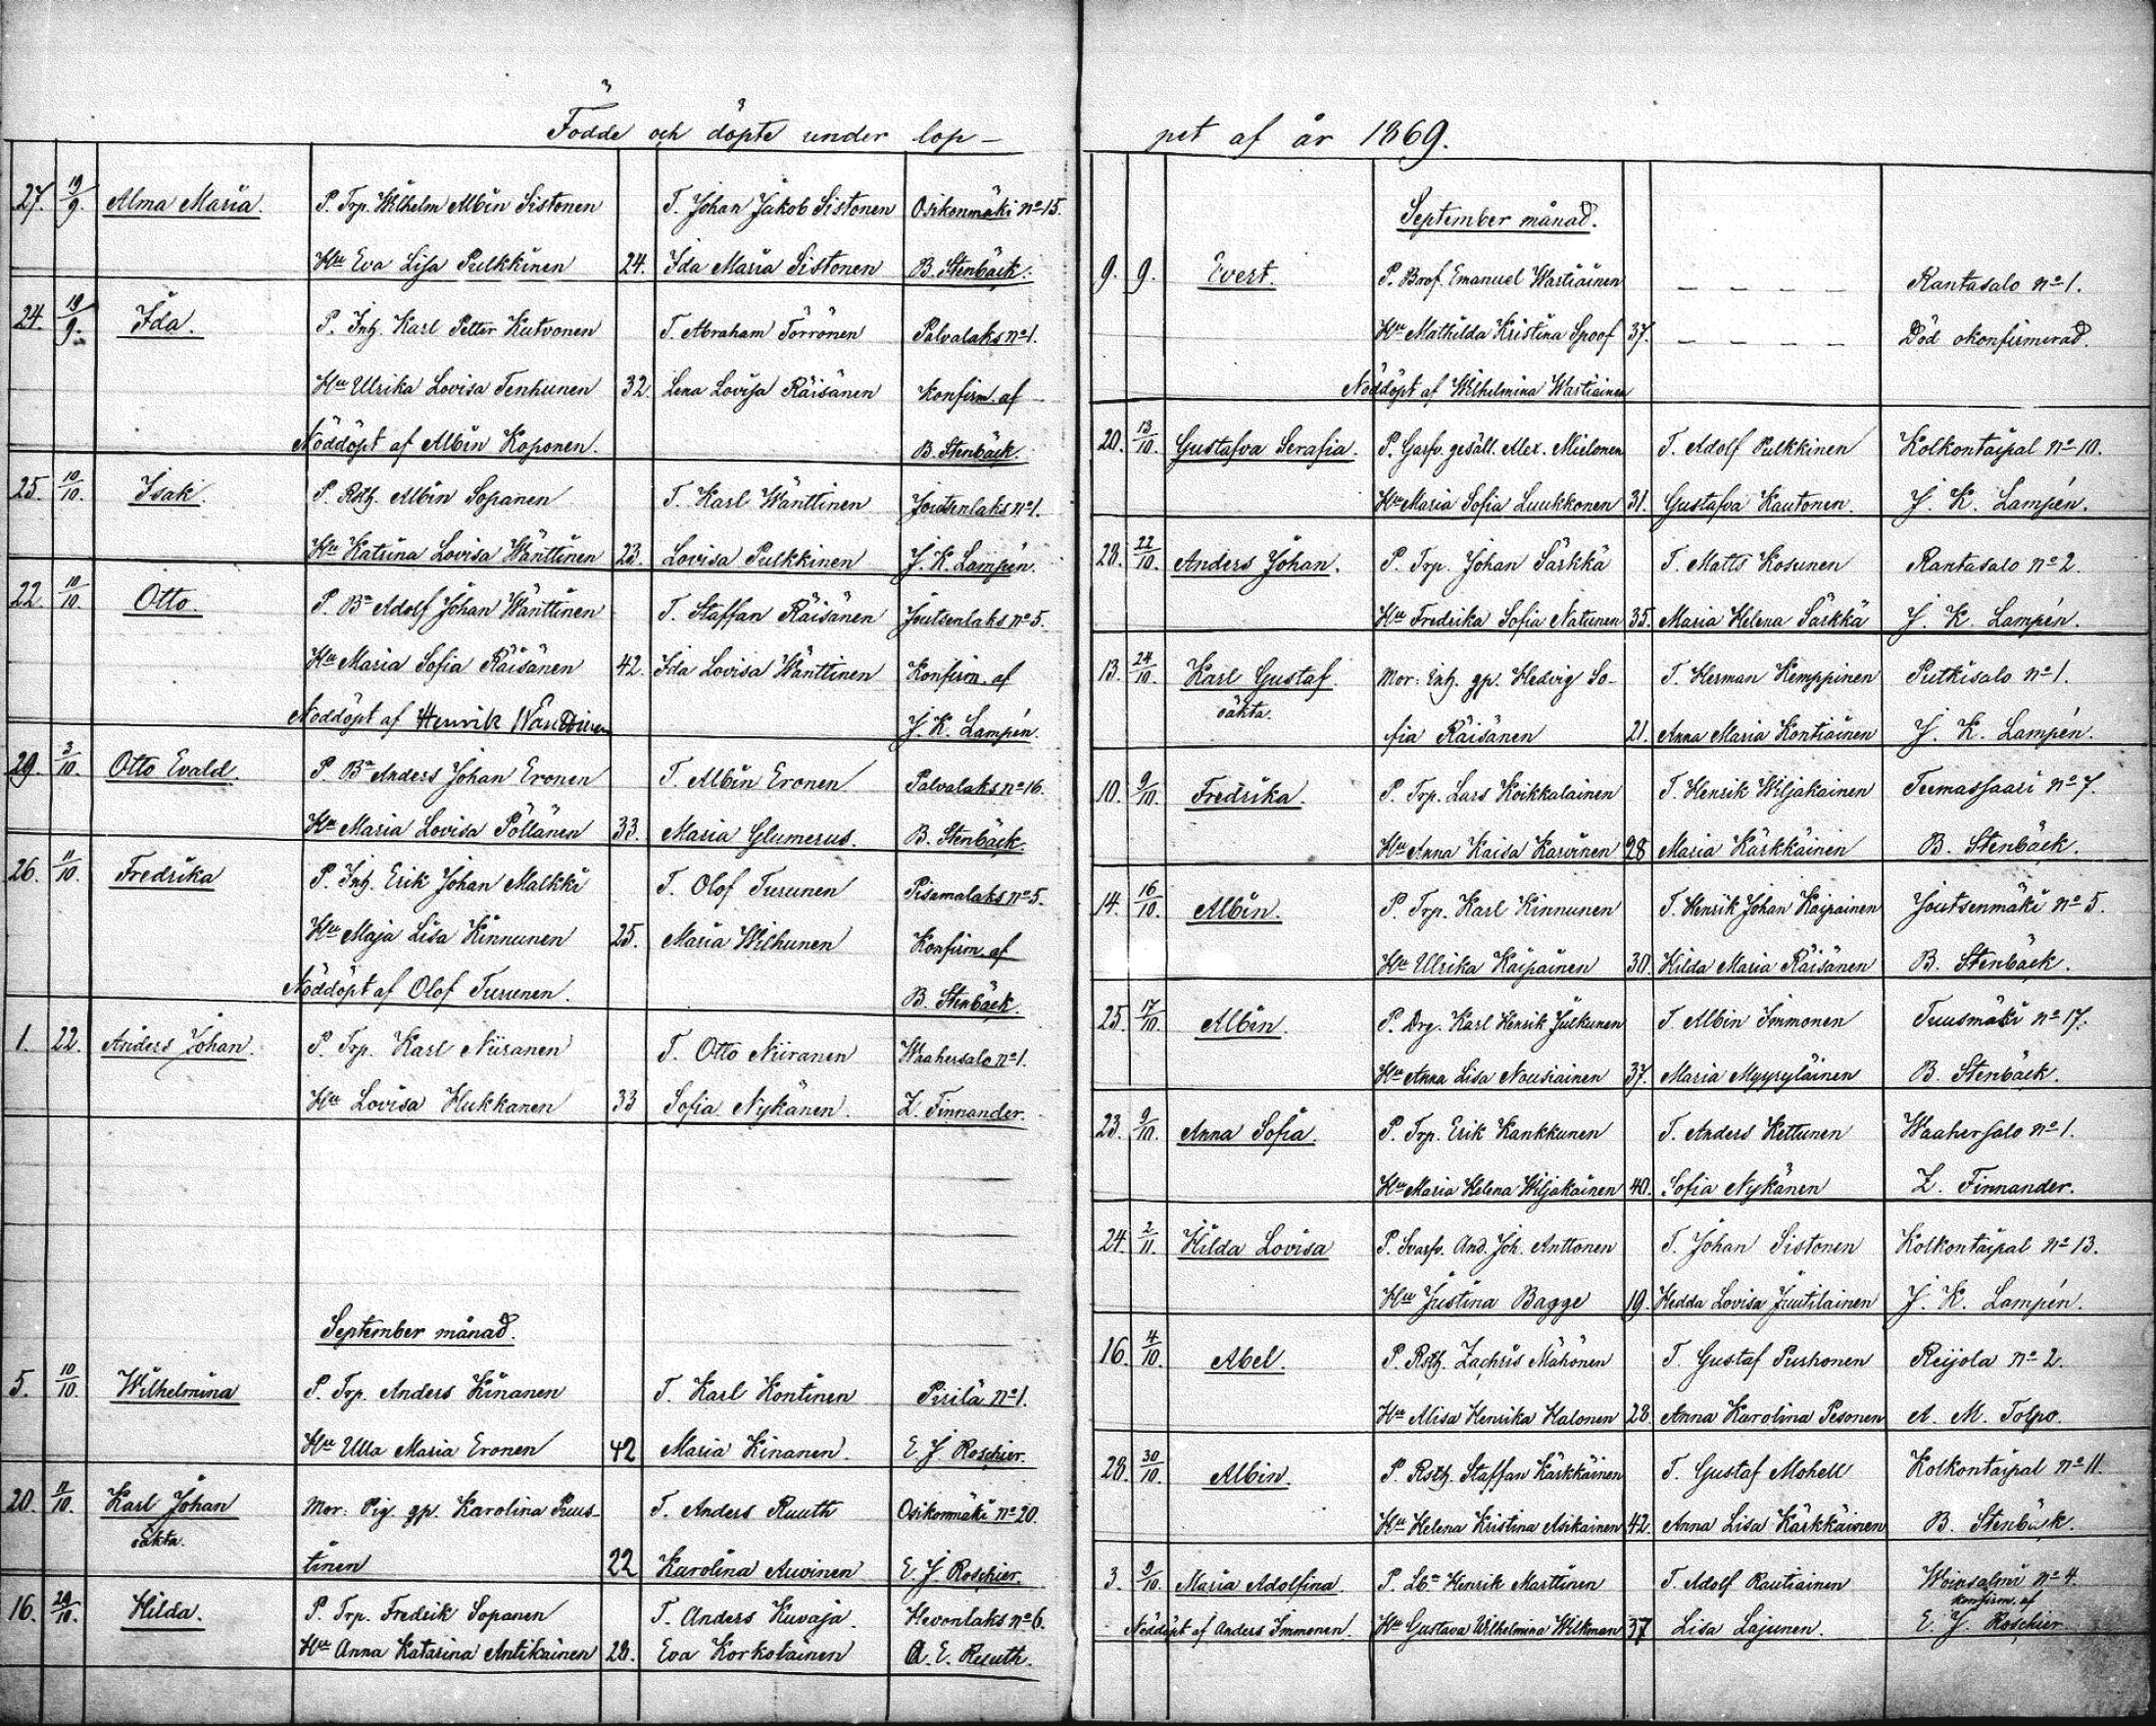 Födde och döpte under lop-
27. 19/9. Alma Maria. P. Trp. Wilhelm Albin Sistonen T. Johan Jakob Sistonen Osikonmäki No 15.
Hu Eva Lisa Pulkkinen 24. Ida Maria Sistonen B. Stenbäck.
24. 19/9. Ida. P. Inh. Karl Petter Kutvonen T. Abraham Törrönen Palvalaks No 1.
Hu Ulrika Lovisa Tenhunen 32. Lena Lovisa Räisänen Konfirm. af
Nöddöpt af Albin Koponen. B. Stenbäck.
25. 10/10. Isak. P. Rsth. Albin Sopanen T. Karl Wänttinen Joutsenlaks No 1.
Hu Katrina Lovisa Wänttinen 23. Lovisa Pulkkinen J. K. Lampén.
22. 10/10. Otto. P. Bn Adolf Johan Wänttinen T. Staffan Räisänen Joutsenlaks No 5.
Hu Maria Sofia Räisänen 42. Ida Lovisa Wänttinen Konfirm. af
Nöddöpt af Henrik J. K. Lampén.
29. 3/10. Otto Evald. P. Bn Anders Johan Eronen T. Albin Eronen Palvalaks No 16.
Hu Maria Lovisa Pöllänen 33. Maria Glumerus. B. Stenbäck.
26. 11/10. Fredrika P. Inh. Erik Johan Malkki T. Olof Turunen Pisamalaks No 5.
Hu Maja Lisa Kinnunen 25. Maria Wilhunen Konfirm. af
Nöddöpt af Olof Turunen. B. Stenbäck.
1. 22. Anders Johan. P. Trp. Karl Niiranen T. Otto Niiranen Waahersalo No 1.
Hu Lovisa Hukkanen 33 Sofia Nykänen. Z. Finnander.
September månad.
5. 10/10. Wilhelmina P. Trp. Anders Kinanen T. Karl Kontinen Pirilä No 1.
Hu Ulla Maria Eronen 42 Maria Kinanen. E. J. Roschier.
20. 11/10. Karl Johan Mor: Pig. gp. Karolina Puus- T. Anders Ruuth Osikonmäki No 20.
oäkta. tinen 22 Karolina Auvinen E. J. Roschier.
16. 24/10. Hilda. P. Trp. Fredrik Sopanen T. Anders Kuvaja Hevonlaks No 6.
Hu Anna Katarina Antikainen 28. Eva Korkolainen A. E. Ruuth.
pet af år 1869.
September månad.
9. 9. Evert. P. Brof. Emanuel Wartiainen — — — — Rantasalo No 1.
Hu Mathilda Kristina Spoof 37. — — — — Död okonfirmerad.
Nöddöpt af Wilhelmina Wartiainen
20. 13/10. Gustafva Serafia. P. Garfv. gesäll. Alex. Miilonen T. Adolf Pulkkinen Kolkontaipal No 10.
Hu Maria Sofia Luukkonen 31. Gustafva Kautonen. J. K. Lampén.
28. 22/10. Anders Johan. P. Trp. Johan Särkkä T. Matts Kosunen Rantasalo No 2.
Hu Fredrika Sofia Natunen 35. Maria Helena Särkkä J. K. Lampén.
13. 24/10. Karl Gustaf Mor: Enk. gp. Hedvig So- T. Herman Kemppinen Putkisalo No 1.
oäkta. fia Räisänen 21. Anna Maria Kontiainen J. K. Lampén.
10. 9/10. Fredrika. P. Trp. Lars Koikkalainen T. Henrik Wiljakainen Teemassaari No 7.
Hu Anna Kaisa Karvinen 28 Maria Kärkkäinen B. Stenbäck.
14. 16/10. Albin. P. Trp. Karl Kinnunen T. Henrik Johan Kaipainen Joutsenmäki No 5.
Hu Ulrika Kaipainen 30. Hilda Maria Räisänen B. Stenbäck.
25. 17/10. Albin. P. Drg. Karl Henrik Julkunen T. Albin Immonen Tuusmäki No 17.
Hu Anna Lisa Nousiainen 37. Maria Myyryläinen B. Stenbäck.
23. 9/10. Anna Sofia. P. Trp. Erik Kankkunen T. Anders Kettunen Waahersalo No 1.
Hu Maria Helena Wiljakainen 40. Sofia Nykänen Z. Finnander.
24. 2/11. Hilda Lovisa P. Svarfv. And. Joh. Anttonen T. Johan Sistonen Kolkontaipal No 13.
Hu Justina Bagge 19. Hedda Lovisa Juutilainen J. K. Lampén.
16. 4/10. Abel. P. Rsth. Zachris Mähönen T. Gustaf Purhonen Reijola No 2.
Hu Alisa Henrika Halonen 28. Anna Karolina Pesonen A. M. Tolpo.
28. 30/10. Albin. P. Rsth. Staffan Kärkkäinen T. Gustaf Mohell Kolkontaipal No 11.
Hu Helena Kristina Asikainen 42. Anna Lisa Kärkkäinen B. Stenbäck.
3. 3/10. Maria Adolfina P. Lbn Henrik Marttinen T. Adolf Rautiainen Woinsalmi No 4.
konfirm. af
Nöddöpt af Anders Immonen. Hu Gustava Wilhelmina Wilkman 37 Lisa Lajunen. E. J. Roschier